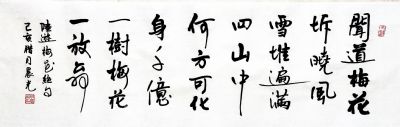 聞道梅花
坼曉風
雪堆遍滿
四山中
何方可化
身千億
一樹梅花
一放翁
陸游梅花絕句
己亥腊月晨光